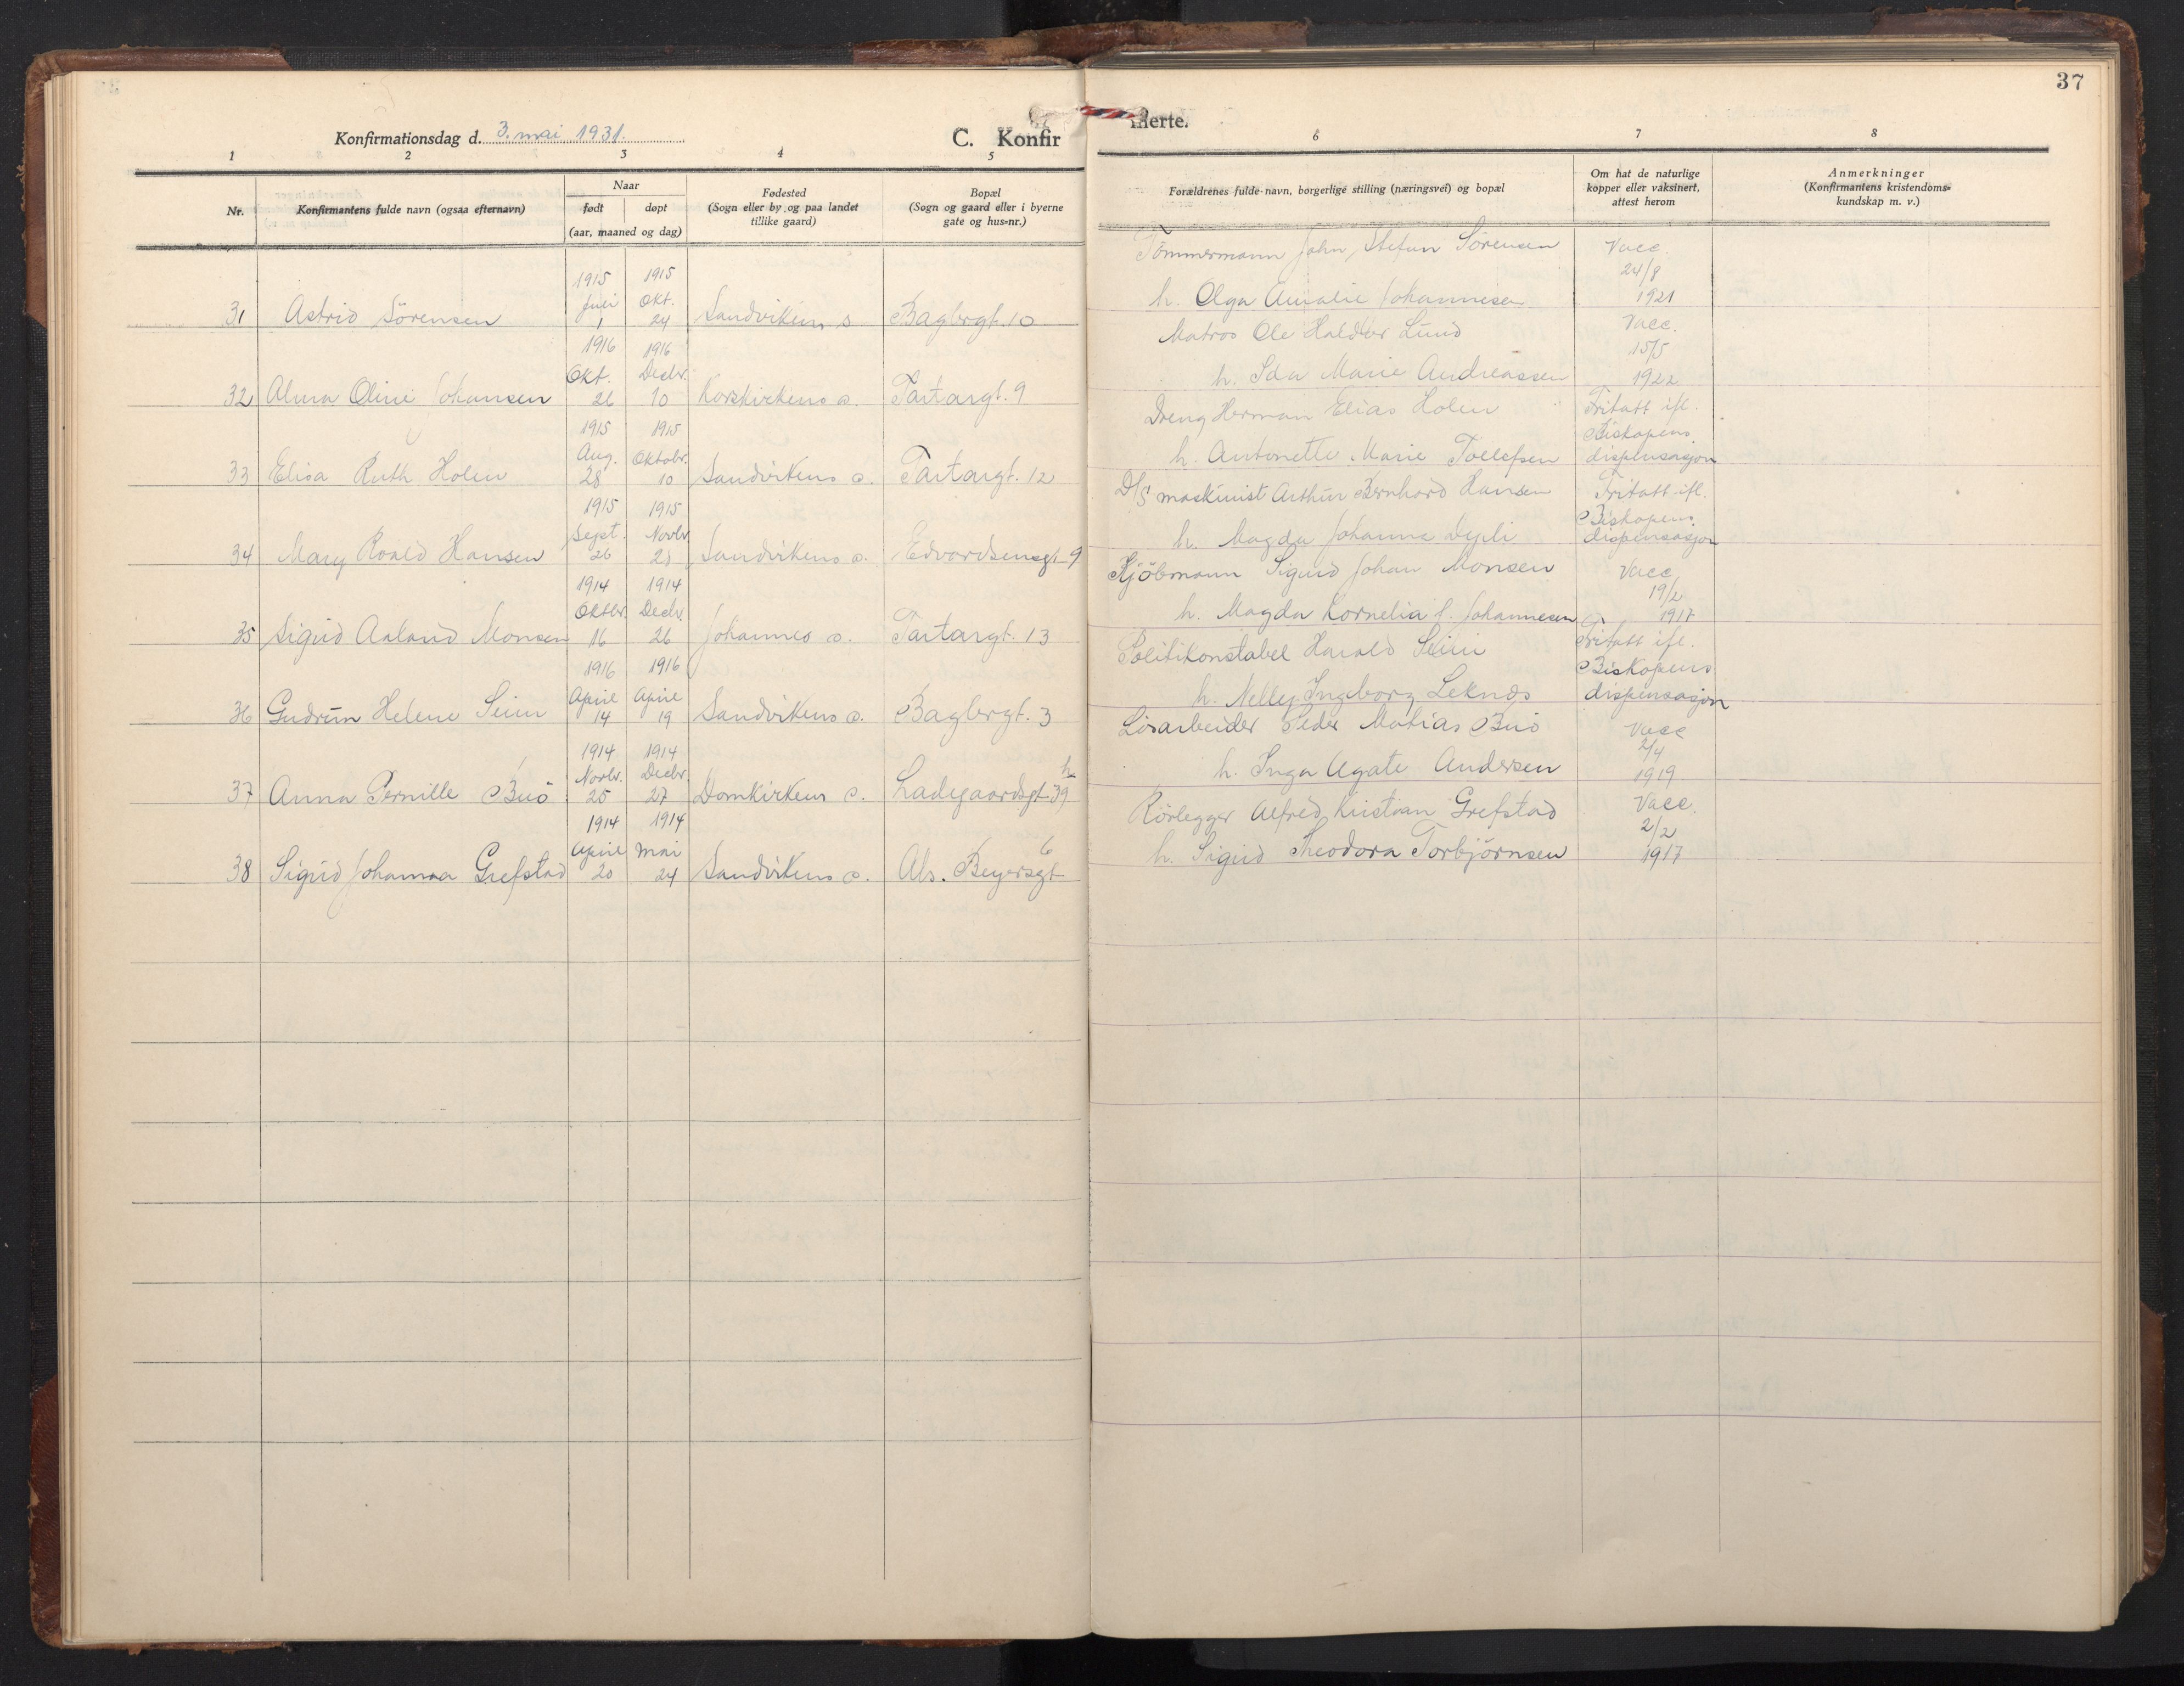 37
Konfirmationsdag d. 3. mai 1931.
C. Konfir
merte.
1 2 3 4 5 6 7 8
Nr.
Konfirmantens fulde navn (ogsaa efternavn)
Naar
født døpt
(aar, maaned og dag)
Fødested
(Sogn eller by og paa landet
tillike gaard)
Bopæl
(Sogn og gaard eller i byerne
gate og hus-nr.)
Forældrenes fulde navn, borgerlige stilling (næringsvei) og bopæl
Om hat de naturlige
kopper eller vaksinert,
attest herom
Anmerkninger
(Konfirmantens kristendoms-
kundskap m. v.)
1915 1915
Juli Okt.
31 Astrid Sörensen 1 24 Sandvikens s. Bagergt. 10
Tömmermann John Stefan Sörensen
h. Olga Amalie Johannesen
Vacc.
24/8
1921
1916 1916
Okt. Decbr.
32 Alma Oline Johansen 26 10 Korskirkens s. Tartargt. 9
Matros Ole Haldor Lund
h. Ida Marie Andreassen
Vacc.
15/5
1922
1915 1915
Aug. Oktobr.
33 Elisa Ruth Holen 28 10 Sandvikens s. Tartargt. 12
Dreng Herman Elias Holen
h. Antonette Marie Tollefsen
Fritatt ifl.
Biskopens
dispensasjon
1915 1915
Sept. Novbr.
34 Mary Roald Hansen 26 21 Sandvikens s. Edvardsensgt 9
D/S maskinist Arthur Bernhard Hansen
h. Magda Johanna
Fritatt ifl.
Biskopens
dispensasjon
1914 1914
Oktbr. Decbr.
35 Sigrid Aaland Monsen 16 26 Johannes s. Tartargt. 13
Kjöbmann Sigurd Johan Monsen
h. Magda Kornelia f. Johannesen
Vacc.
19/2
1917
1916 1916
April April
36 Gudrun Helene Seim 14 19 Sandvikens s. Bagergt. 3
Politikonstabel Harald Seim
h. Nelly Ingeborg Leknes
Fritatt ifl.
Biskopens
dispensasjon
1914 1914
Novbr. Decbr.
37 Anna Pernille Buö 25 27 Domkirkens s. Ladegaardsgt 39 h
Lösarbeider Peder Matias Buö
h. Inga Agate Andersen
Vacc
2/4
1919
1914 1914
April Mai
38 Sigrid Johanna Grefstad 20 24 Sandvikens s. Abs. Beyersgt 6
Rörlegger Alfred Kristian Grefstad
h. Sigrid Theodora Torbjörnsen
Vacc.
2/2
1917